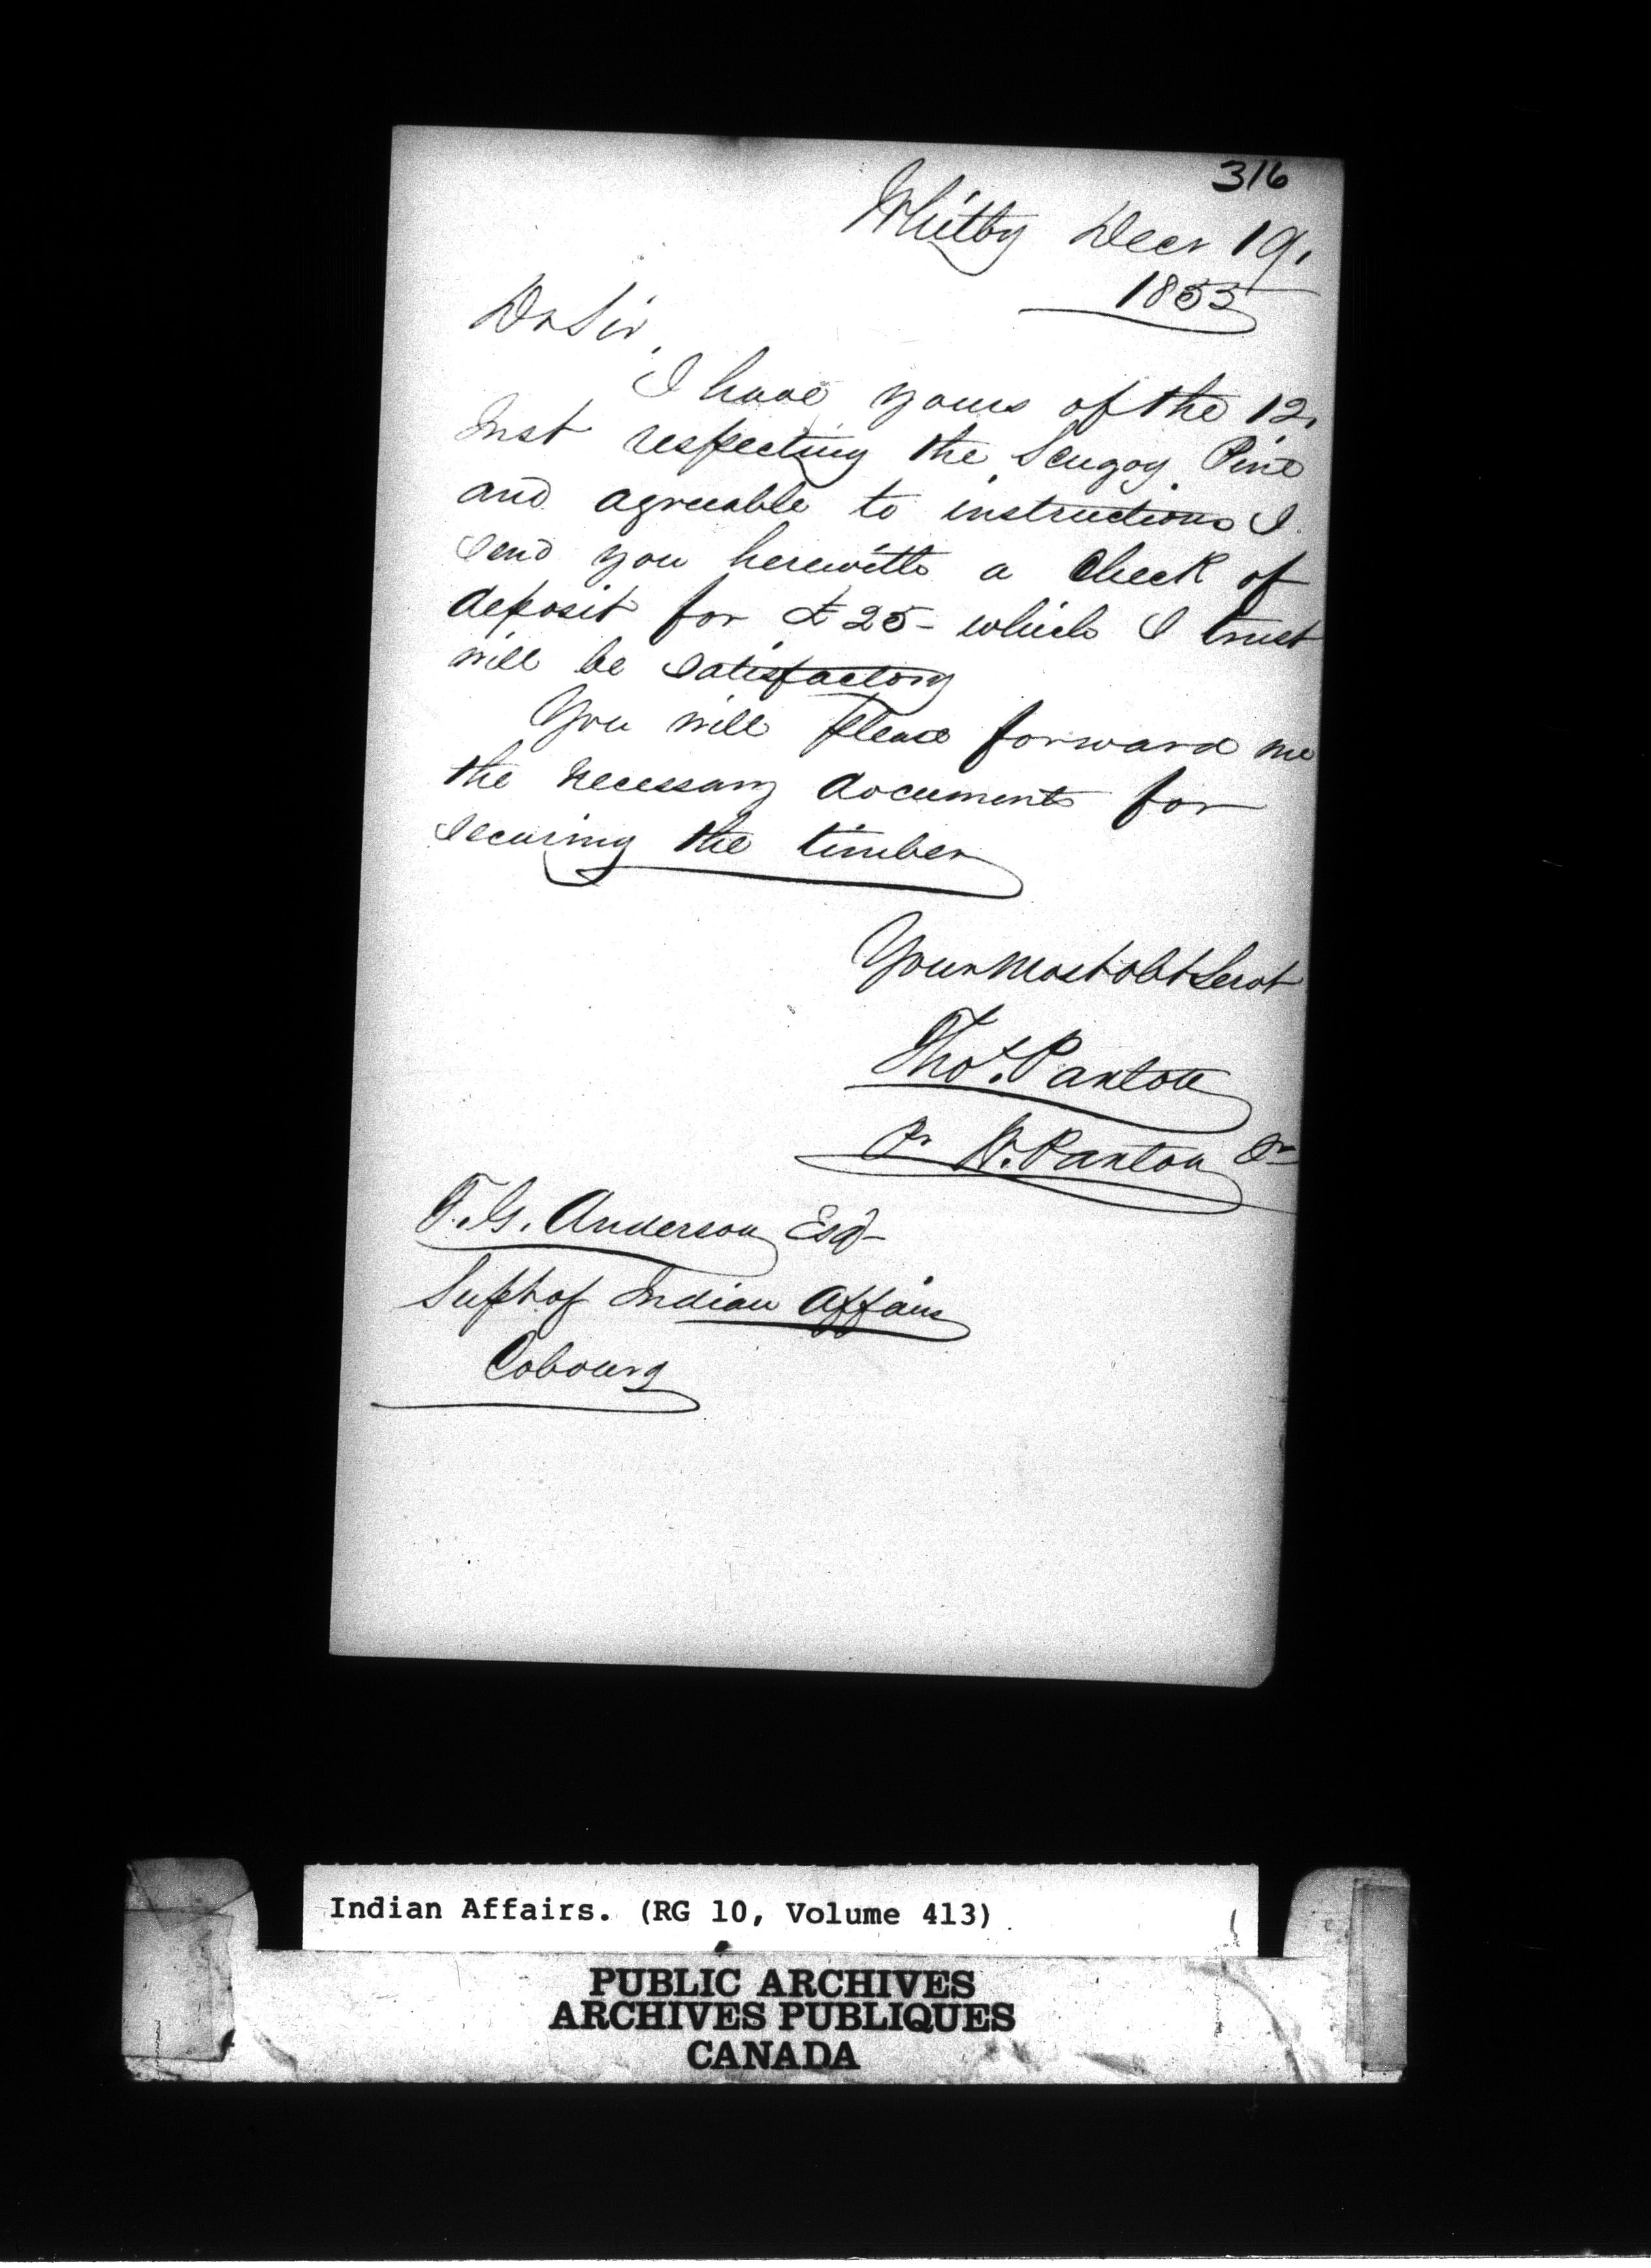 316
Whitby Decr 19,
1853
Dr Sir,
I have yours of the 12,
Inst respecting the Scugog Pine
and agreeable to instructions I
send you herewith a Check of
deposit for £25- which I trust
will be satisfactory
You will Please forward me
the necessary documents for
securing the timber
Your most obt Servt
Thos. Panton
Pr W. Panton Jr
T. G. Anderson Esq-
Supt of Indian Affairs
Cobourg
Indian Affairs. (RG 10, Volume 413)
PUBLIC ARCHIVES
ARCHIVES PUBLIQUES
CANADA